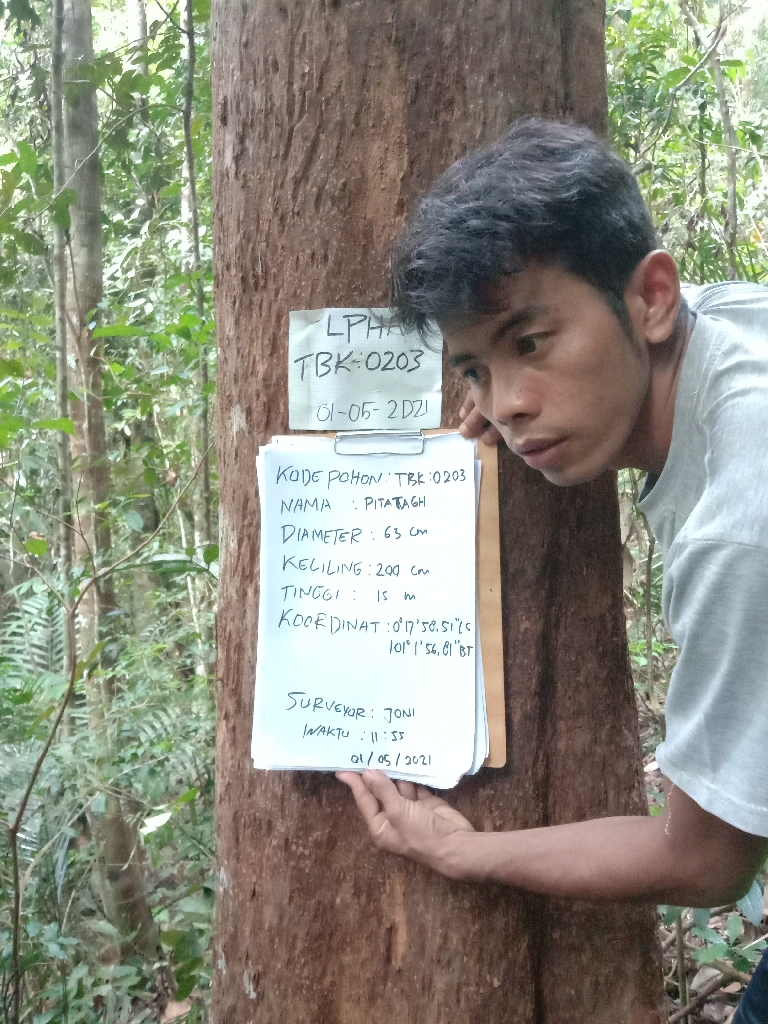 LPHA
TBK:0203
01-05-2021
KODE POHON: TBK:0203
NAMA : PITATAGH
DIAMETER : 63 cm
KELILING : 200 cm
TINGGI : 15 m
KOORDINAT : 0°17'58,51"LS
101°1'56,81"BT
SURVEYOR : JONI
WAKTU : 11:55
01/05/2021